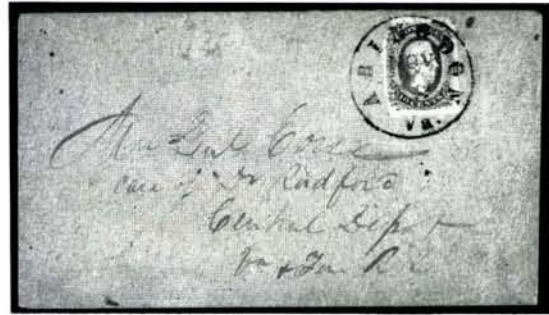 ABINGDON
VA.
Mrs Genl Corse
care of Dr Radford
Central Depot
Va & Ten R R